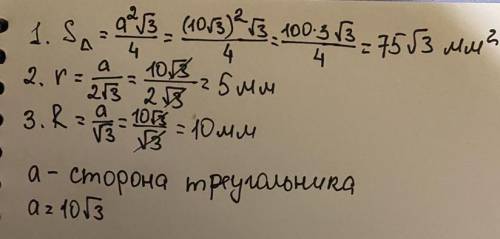 1. S△ = a²√3/4 = (10√3)²√3/4 = 100·3√3/4 = 75√3 мм²
2. r = a/2√3 = 10√3/2√3 = 5 мм
3. R = a/√3 = 10√3/√3 = 10 мм
a - сторона треугольника
a = 10√3